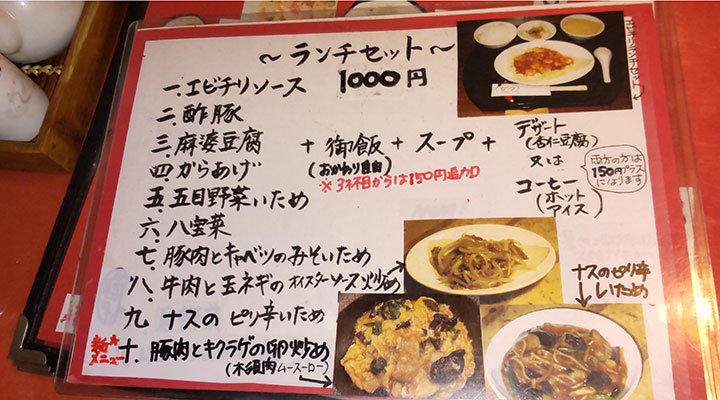 ～ランチセット～
1000円
一.エビチリソース
二.酢豚
三.麻婆豆腐
四.からあげ
五.五目野菜いため
六.八宝菜
七.豚肉とキャベツのみそいため
八.牛肉と玉ネギのオイスターソース炒め
九.ナスのピリ辛いため
十.豚肉とキクラゲの卵炒め
(木須肉ムースーロー)
メニュー
+ 御飯 + スープ +
(おかわり自由)
※3杯目からは150円追加
デザート
(杏仁豆腐)
又は
コーヒー
(ホット
アイス)
両方の方は
150円プラス
になります
エビチリランチセット
ナスのピリ辛
いため